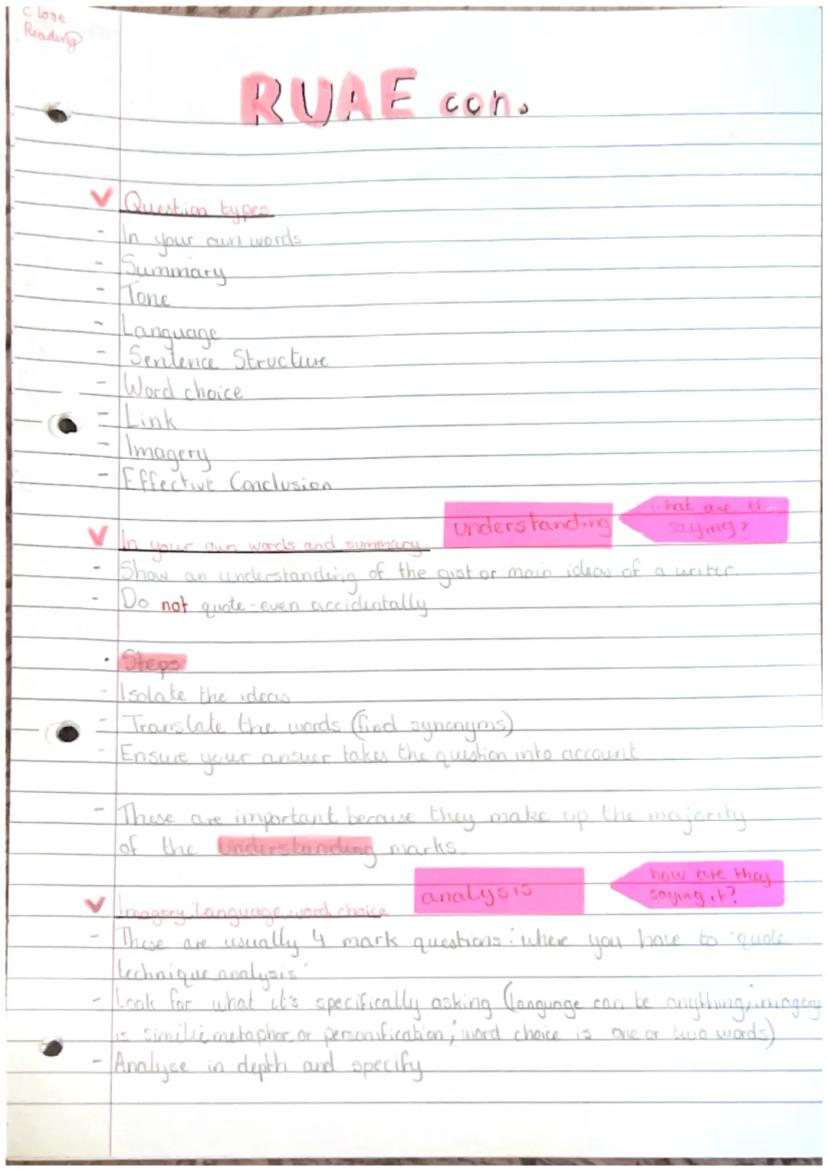 Close
Reading
RUAE con.
Question types
- In your own words
- Summary
- Tone
- Language
- Sentence Structure
- Word choice
- Link
- Imagery
- Effective Conclusion
understanding
what are th
saying?
In your own words and summary
- Show an understanding of the gist or main ideas of a writer.
- Do not quote - even accidentally
• Steps
- Isolate the ideas
- Translate the words (find synonyms)
- Ensure your answer takes the question into account
- These are important because they make up the majority
of the understanding marks.
analysis
how are they
saying it?
Imagery, language, word choice
- These are usually 4 mark questions: where you have to 'quote
technique analysis'
- Look for what it's specifically asking (language can be anything; imagery
is simili, metaphor or personification; word choice is one or two words)
- Analyse in depth and specify